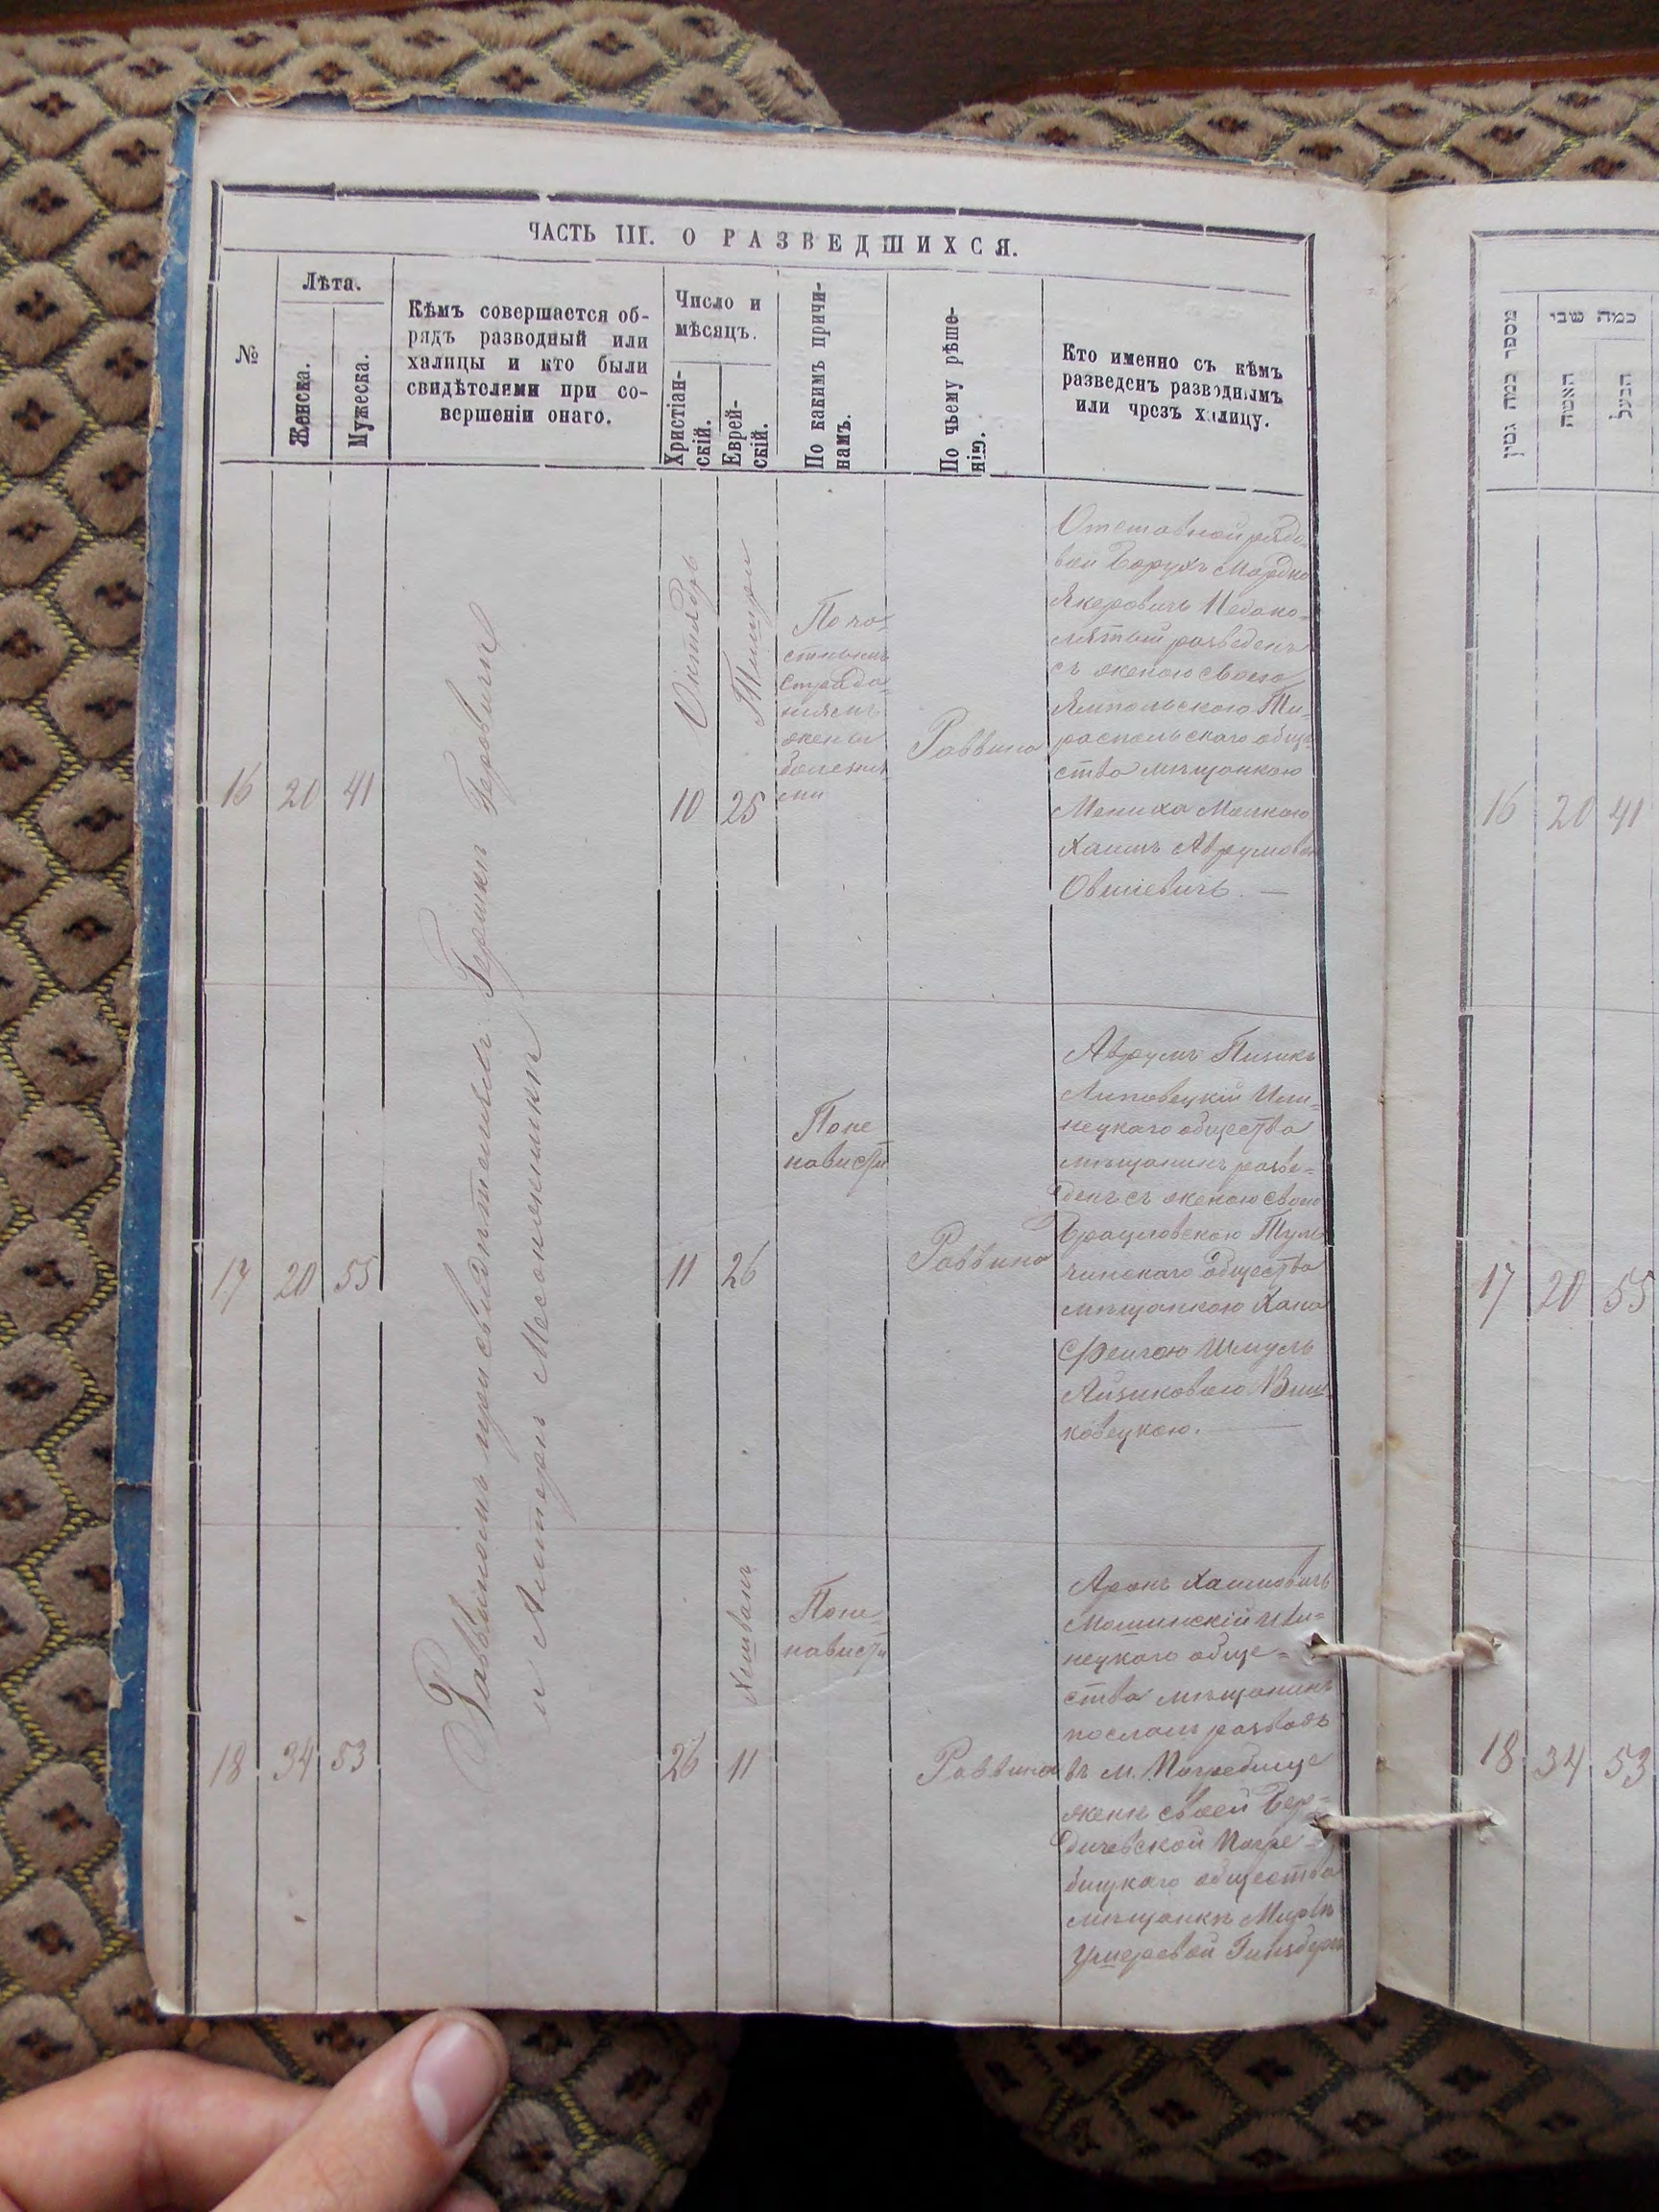 ЧАСТЬ III. О РАЗВЕДШИХСЯ.
№
Лѣта.
Женска.
Мужеска.
Кѣмъ совершается об-
рядъ разводный или
халицы и кто были
свидѣтелями при со-
вершеніи онаго.
Число и
мѣсяцъ.
Христіан-
скій.
Еврей-
скій.
По какимъ причи-
намъ.
По чьему рѣше-
нію.
Кто именно съ кѣмъ
разведенъ разводнымъ
или чрезъ халицу.
Раввиномъ при свидѣтеляхъ Гершкѣ Геровичѣ
и Аитерѣ Месонжникѣ
16
20
41
Октябрь
10
Тишри
25
По ча-
стымъ
страда-
ніямъ
жены
болезня
ми
Раввина
Отставной рядо-
вой Борухъ Мордко
Якеровичъ
разведенъ
съ женою своею
Ямпольскою Ти-
распольскаго обще-
ства мѣщанкою
Мениха Малкою
Хаимъ Аврумовою
Овшіевичъ. —
17
20
55
11
26
По не
нависти
Раввина
Аврумъ
Липовецкій Или-
нецкаго общества
мѣщанинъ разве-
денъ съ женою своею
Брацловскою Туль
чинскаго общества
мѣщанкою Хана
Фейгою Шмуль
Айзиковою Виш-
ковецкою. —
18
34
53
26
Хешванъ
11
По не
нависти
Раввина
Аронъ Хаимовичъ
Мошинскій Или-
нецкаго обще-
ства мѣщанинъ
послалъ разводъ
въ м. Погребище
женѣ своей Бер-
дичевской Погре-
бищкаго общества
мѣщанкѣ
Ушеровой Гинзбергъ
מספר כמה גטין
כמה שני
האשה
הבעל
16
20
41
17
20
55
18
34
53